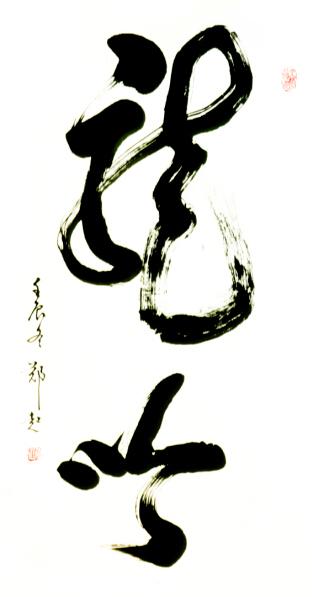 龍吟
壬辰冬 鄭